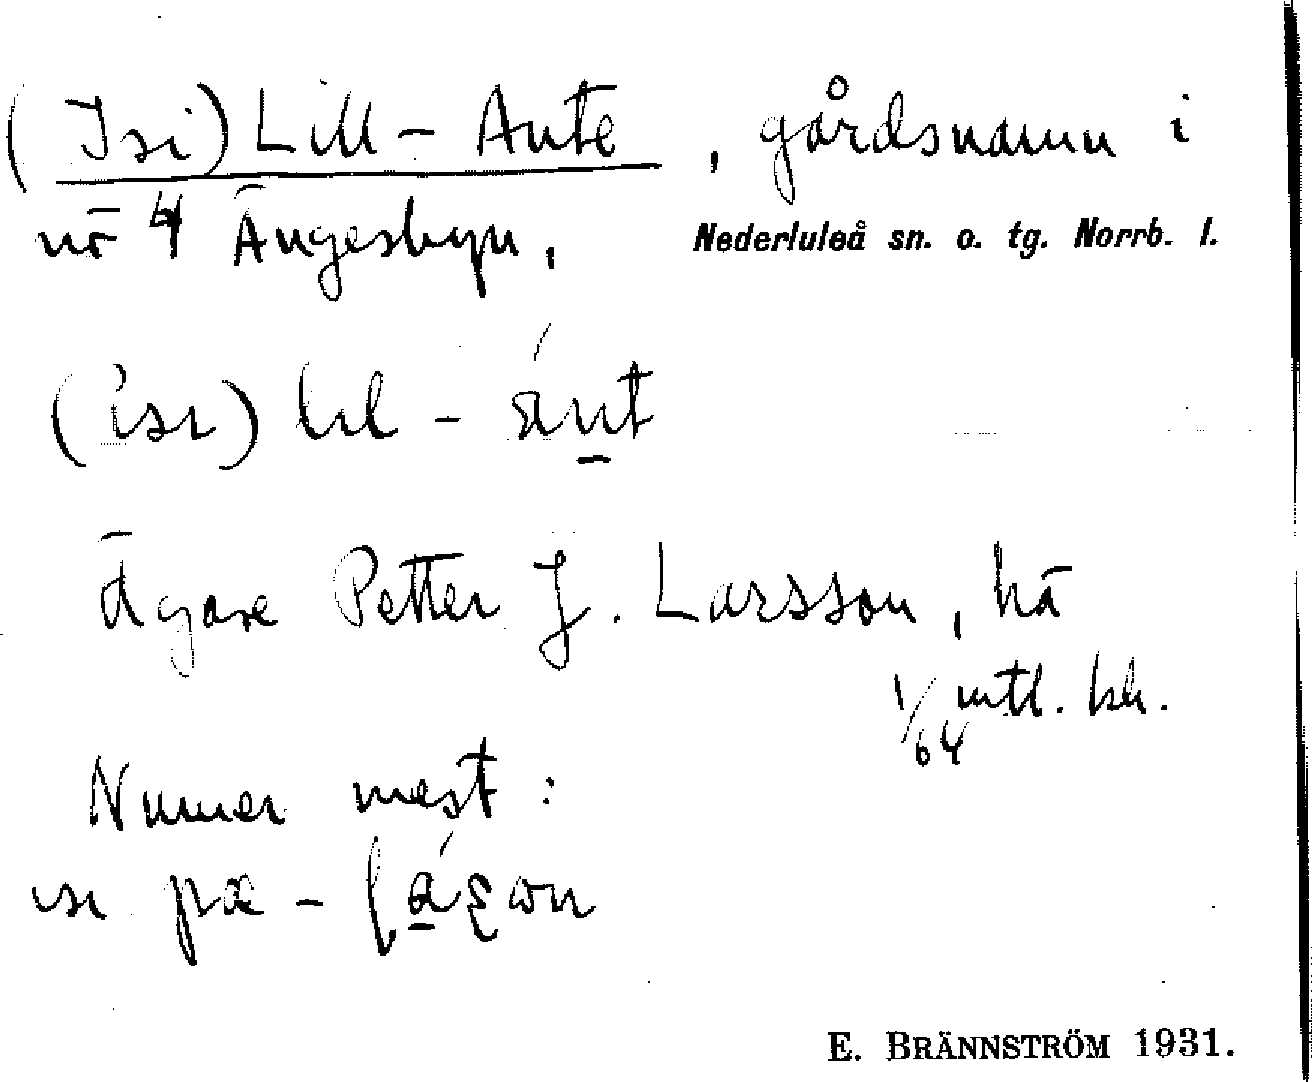 (Isi) Lill-Ante, gårdsnamn i
nr 4 Ängesbyn, Nederluleå sn. o. tg. Norrb. l.
(isɩ) lɩl - ánt
Ägare Petter J. Larsson, hā
1/64 mtl. kr.
Numer mest:
ɩsɩ pæ -
E. BRÄNNSTRÖM 1931.